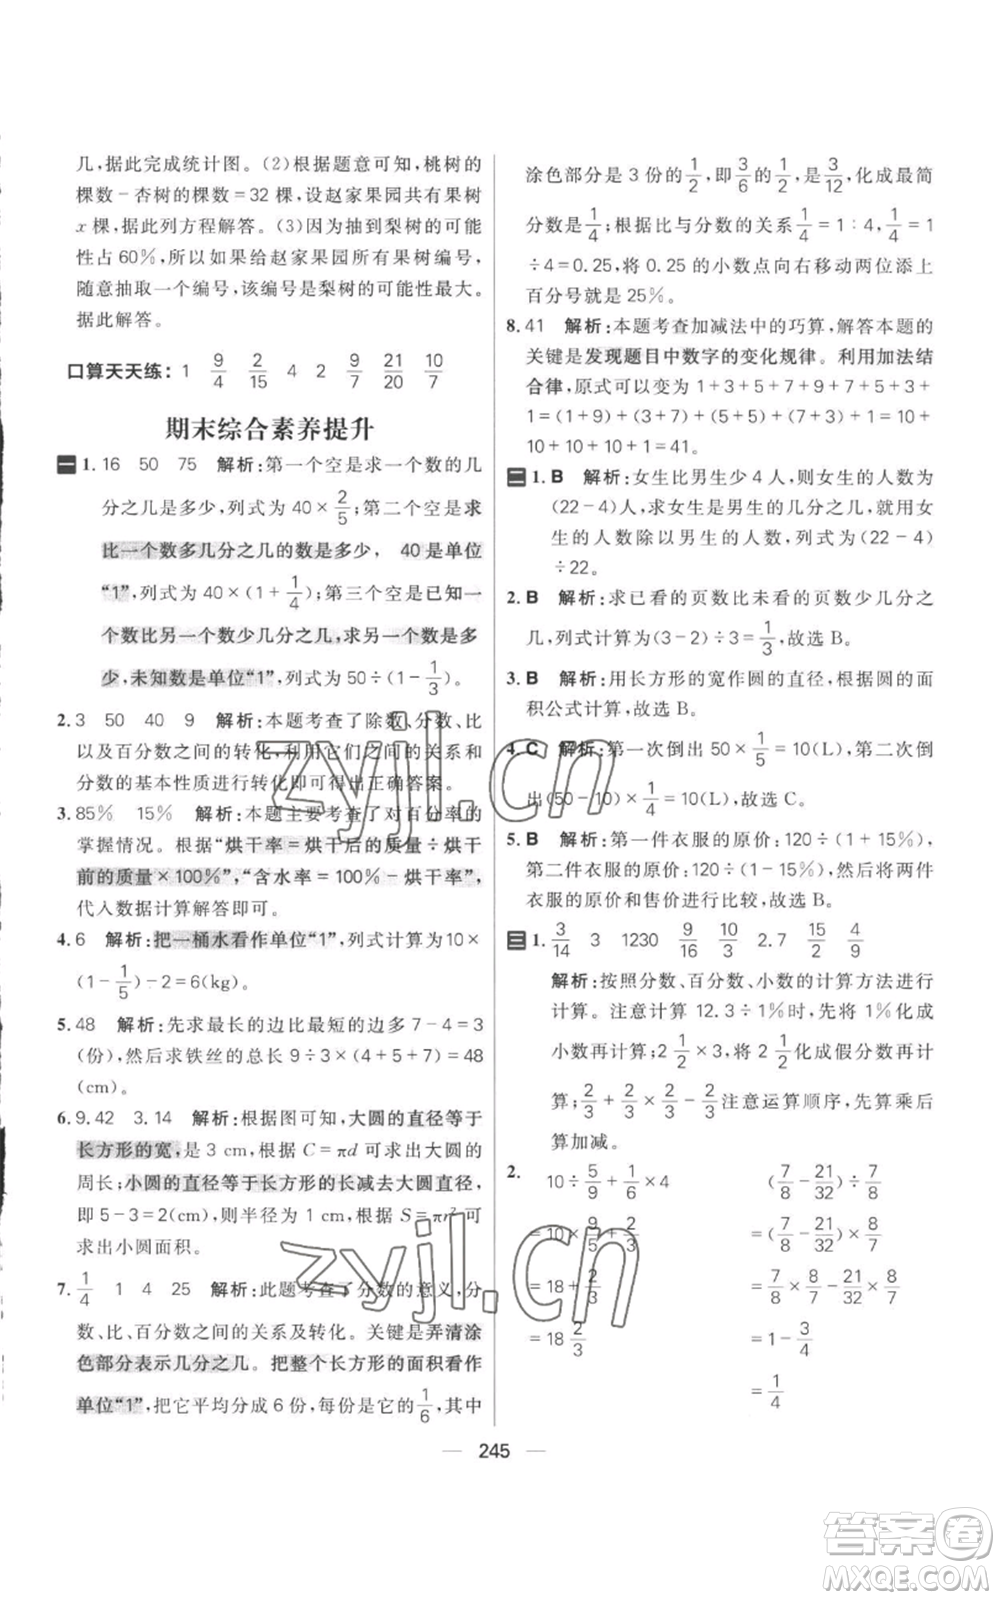 几,据此完成统计图。(2)根据题意可知,桃树的
棵数－杏树的棵数＝32 棵,设赵家果园共有果树
x 棵,据此列方程解答。(3)因为抽到梨树的可能
性占 60％,所以如果给赵家果园所有果树编号,
随意抽取一个编号,该编号是梨树的可能性最大。
据此解答。
口算天天练: 1 9/4 2/15 4 2 9/7 21/20 10/7
期末综合素养提升
一 1. 16 50 75 解析:第一个空是求一个数的几
分之几是多少,列式为 40×2/5;第二个空是求
比一个数多几分之几的数是多少, 40 是单位
“1”,列式为 40×(1＋1/4);第三个空是已知一
个数比另一个数少几分之几,求另一个数是多
少,未知数是单位“1”,列式为 50÷(1－1/3)。
2. 3 50 40 9 解析:本题考查了除数、分数、比
以及百分数之间的转化,利用它们之间的关系和
分数的基本性质进行转化即可得出正确答案。
3. 85％ 15％ 解析:本题主要考查了对百分率的
掌握情况。根据“烘干率＝烘干后的质量÷烘干
前的质量×100％”,“含水率＝100％－烘干率”,
代入数据计算解答即可。
4. 6 解析:把一桶水看作单位“1”,列式计算为10×
(1－1/5)－2＝6(kg)。
5. 48 解析:先求最长的边比最短的边多 7－4＝3
(份),然后求铁丝的总长 9÷3×(4＋5＋7)＝48
(cm)。
6. 9.42 3.14 解析:根据图可知,大圆的直径等于
长方形的宽,是 3 cm,根据 C＝πd 可求出大圆的
周长;小圆的直径等于长方形的长减去大圆直径,
即 5－3＝2(cm),则半径为 1 cm,根据 S＝πr² 可
求出小圆面积。
7. 1/4 1 4 25 解析:此题考查了分数的意义,分
数、比、百分数之间的关系及转化。关键是弄清涂
色部分表示几分之几。把整个长方形的面积看作
单位“1”,把它平均分成 6 份,每份是它的1/6,其中
涂色部分是 3 份的1/2,即3/6的1/2,是3/12,化成最简
分数是1/4;根据比与分数的关系1/4＝1:4,1/4＝1
÷4＝0.25,将 0.25 的小数点向右移动两位添上
百分号就是 25％。
8. 41 解析:本题考查加减法中的巧算,解答本题的
关键是发现题目中数字的变化规律。利用加法结
合律,原式可以变为 1＋3＋5＋7＋9＋7＋5＋3＋
1＝(1＋9)＋(3＋7)＋(5＋5)＋(7＋3)＋(9＋1)＝10＋
10＋10＋10＋1＝41。
二 1. B 解析:女生比男生少 4 人,则女生的人数为
(22－4)人,求女生是男生的几分之几,就用女
生的人数除以男生的人数,列式为(22－4)
÷22。
2. B 解析:求已看的页数比未看的页数少几分之
几,列式计算为(3－2)÷3＝1/3,故选 B。
3. B 解析:用长方形的宽作圆的直径,根据圆的面
积公式计算,故选 B。
4. C 解析:第一次倒出 50×1/5＝10(L),第二次倒
出(50－10)×1/4＝10(L),故选 C。
5. B 解析:第一件衣服的原价:120÷(1＋15％),
第二件衣服的原价:120÷(1－15％),然后将两件
衣服的原价和售价进行比较,故选 B。
三 1. 3/14 3 1230 9/16 10/3 2.7 15/2 4/9
解析:按照分数、百分数、小数的计算方法进行
计算。注意计算 12.3÷1％时,先将 1％化成
小数再计算;2 1/2×3,将 2 1/2化成假分数再计
算;2/3＋2/3×2/3＋2/3注意运算顺序,先算乘后
算加减。
2. 10÷5/9＋1/6×4 (7/8－21/32)÷7/8
＝10×9/5＋2/3 ＝(7/8－21/32)×8/7
＝18＋2/3 ＝7/8×8/7－21/32×8/7
＝18 2/3 ＝1－3/4
＝1/4
245
zyjl.cn
zyjl.cn
答案卷
MXQE.COM